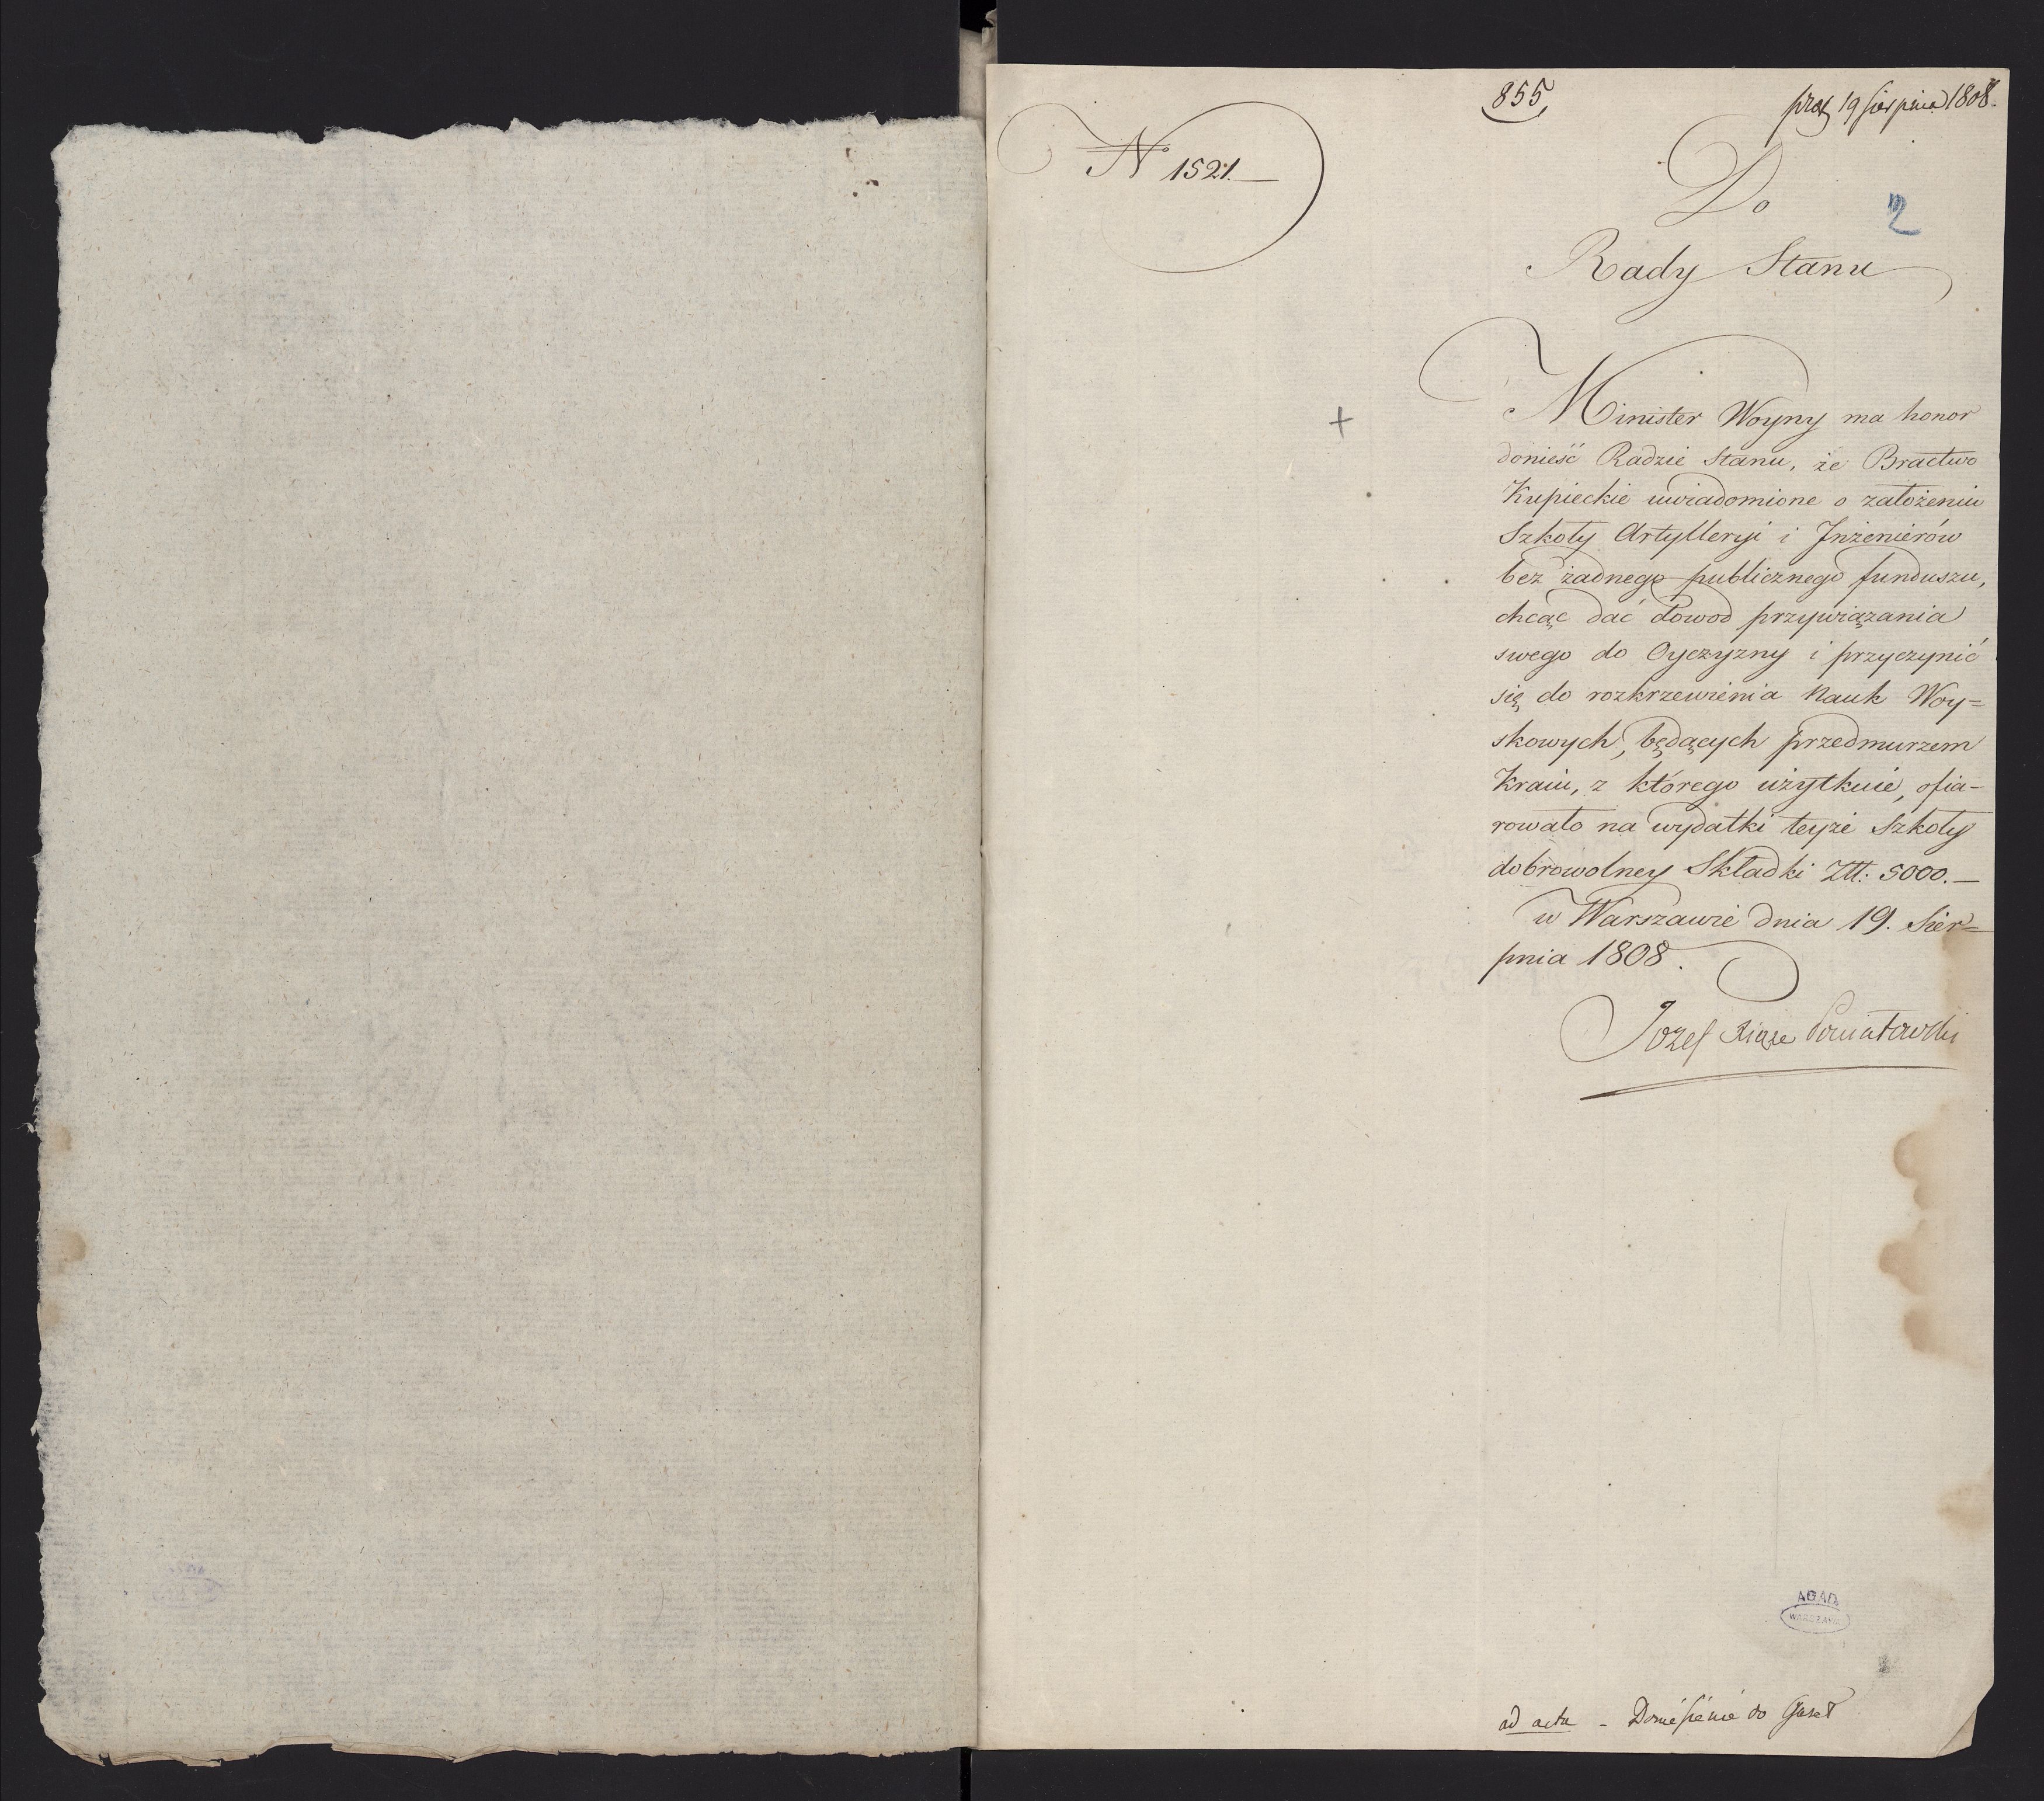 855
praes 19 Sierpnia 1808.
N° 1521.—
Do
2
Rady Stanu
Minister Woyny ma honor
donieść Radzie Stanu, że Bractwo
Kupieckie uwiadomione o założeniu
Szkoły Artylleryi i Inżenierów
bez żadnego publicznego funduszu,
chcąc dać dowod przywiązania
swego do Oyczyzny i przyczynić
się do rozkrzewienia Nauk Woy=
skowych, będących przedmurzem
Kraiu, z którego użytkuie, ofia-
rowało na wydatki teyże Szkoły
dobrowolney Składki Złł: 5000.—
w Warszawie dnia 19. Sier=
pnia 1808.
Jozef Xiąże Poniatowski
AGAD
WARSZAWA
ad acta - Doniesienie do Gazet